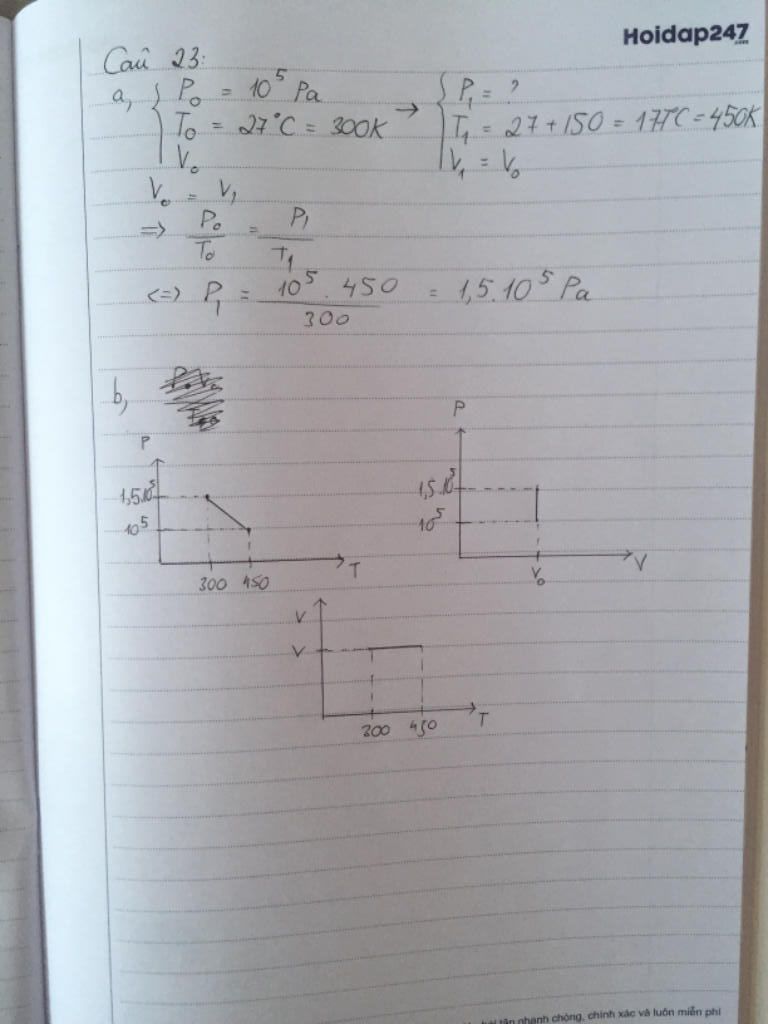 Hoidap247
.com
Câu 23:
a, { P₀ = 10⁵ Pa → { P₁ = ?
T₀ = 27°C = 300K T₁ = 27 + 150 = 177°C = 450K
V₀ V₁ = V₀
V₀ = V₁
=> P₀/T₀ = P₁/T₁
<=> P₁ = 10⁵ . 450 / 300 = 1,5.10⁵ Pa
b,
P
1,5.10⁵
10⁵
300 450 T
P
1,5.10⁵
10⁵
V₀ V
V
V
300 450 T
nhanh chóng, chính xác và luôn miễn phí